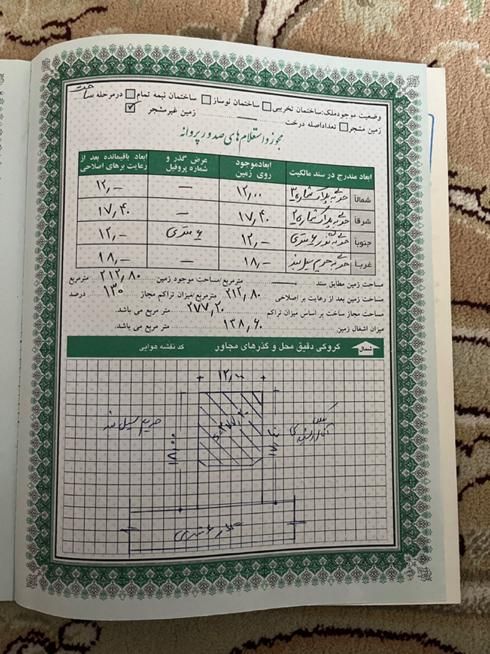 وضعیت موجودملک:ساختمان تخریبی ساختمان نوساز ساختمان نیمه تمام درمرحله ساخت
زمین مشجر تعداداصله درخت زمین غیرمشجر
مجوز و استعلام های صدور پروانه
ابعاد مندرج در سند مالکیت ابعادموجود روی زمین عرض گذر و شماره پروفیل ابعاد باقیمانده بعد از رعایت برهای اصلاحی
شمالاً ۱۲,۰۰ — ۱۲,—
شرقاً ۱۷,۴۰ — ۱۷,۴۰
جنوباً ۱۲,— ۶ متری ۱۲,—
غرباً ۱۸,— — ۱۸,—
مساحت زمین مطابق سند مترمربع/مساحت موجود زمین ۲۱۲,۸۰ مترمربع
مساحت زمین بعد از رعایت بر اصلاحی ۲۱۲,۸۰ مترمربع/میزان تراکم مجاز ۱۳۰ درصد
مساحت مجاز ساخت بر اساس میزان تراکم ۲۷۷,۲۰ متر مربع می باشد.
میزان اشغال زمین ۱۳۸,۶۰ متر مربع می باشد.
شمال کروکی دقیق محل و گذرهای مجاور کد نقشه هوایی
۱۲,۰۰
حریم سیل بند
۱۸,۰۰
۱۷,۴۰
۶ متری